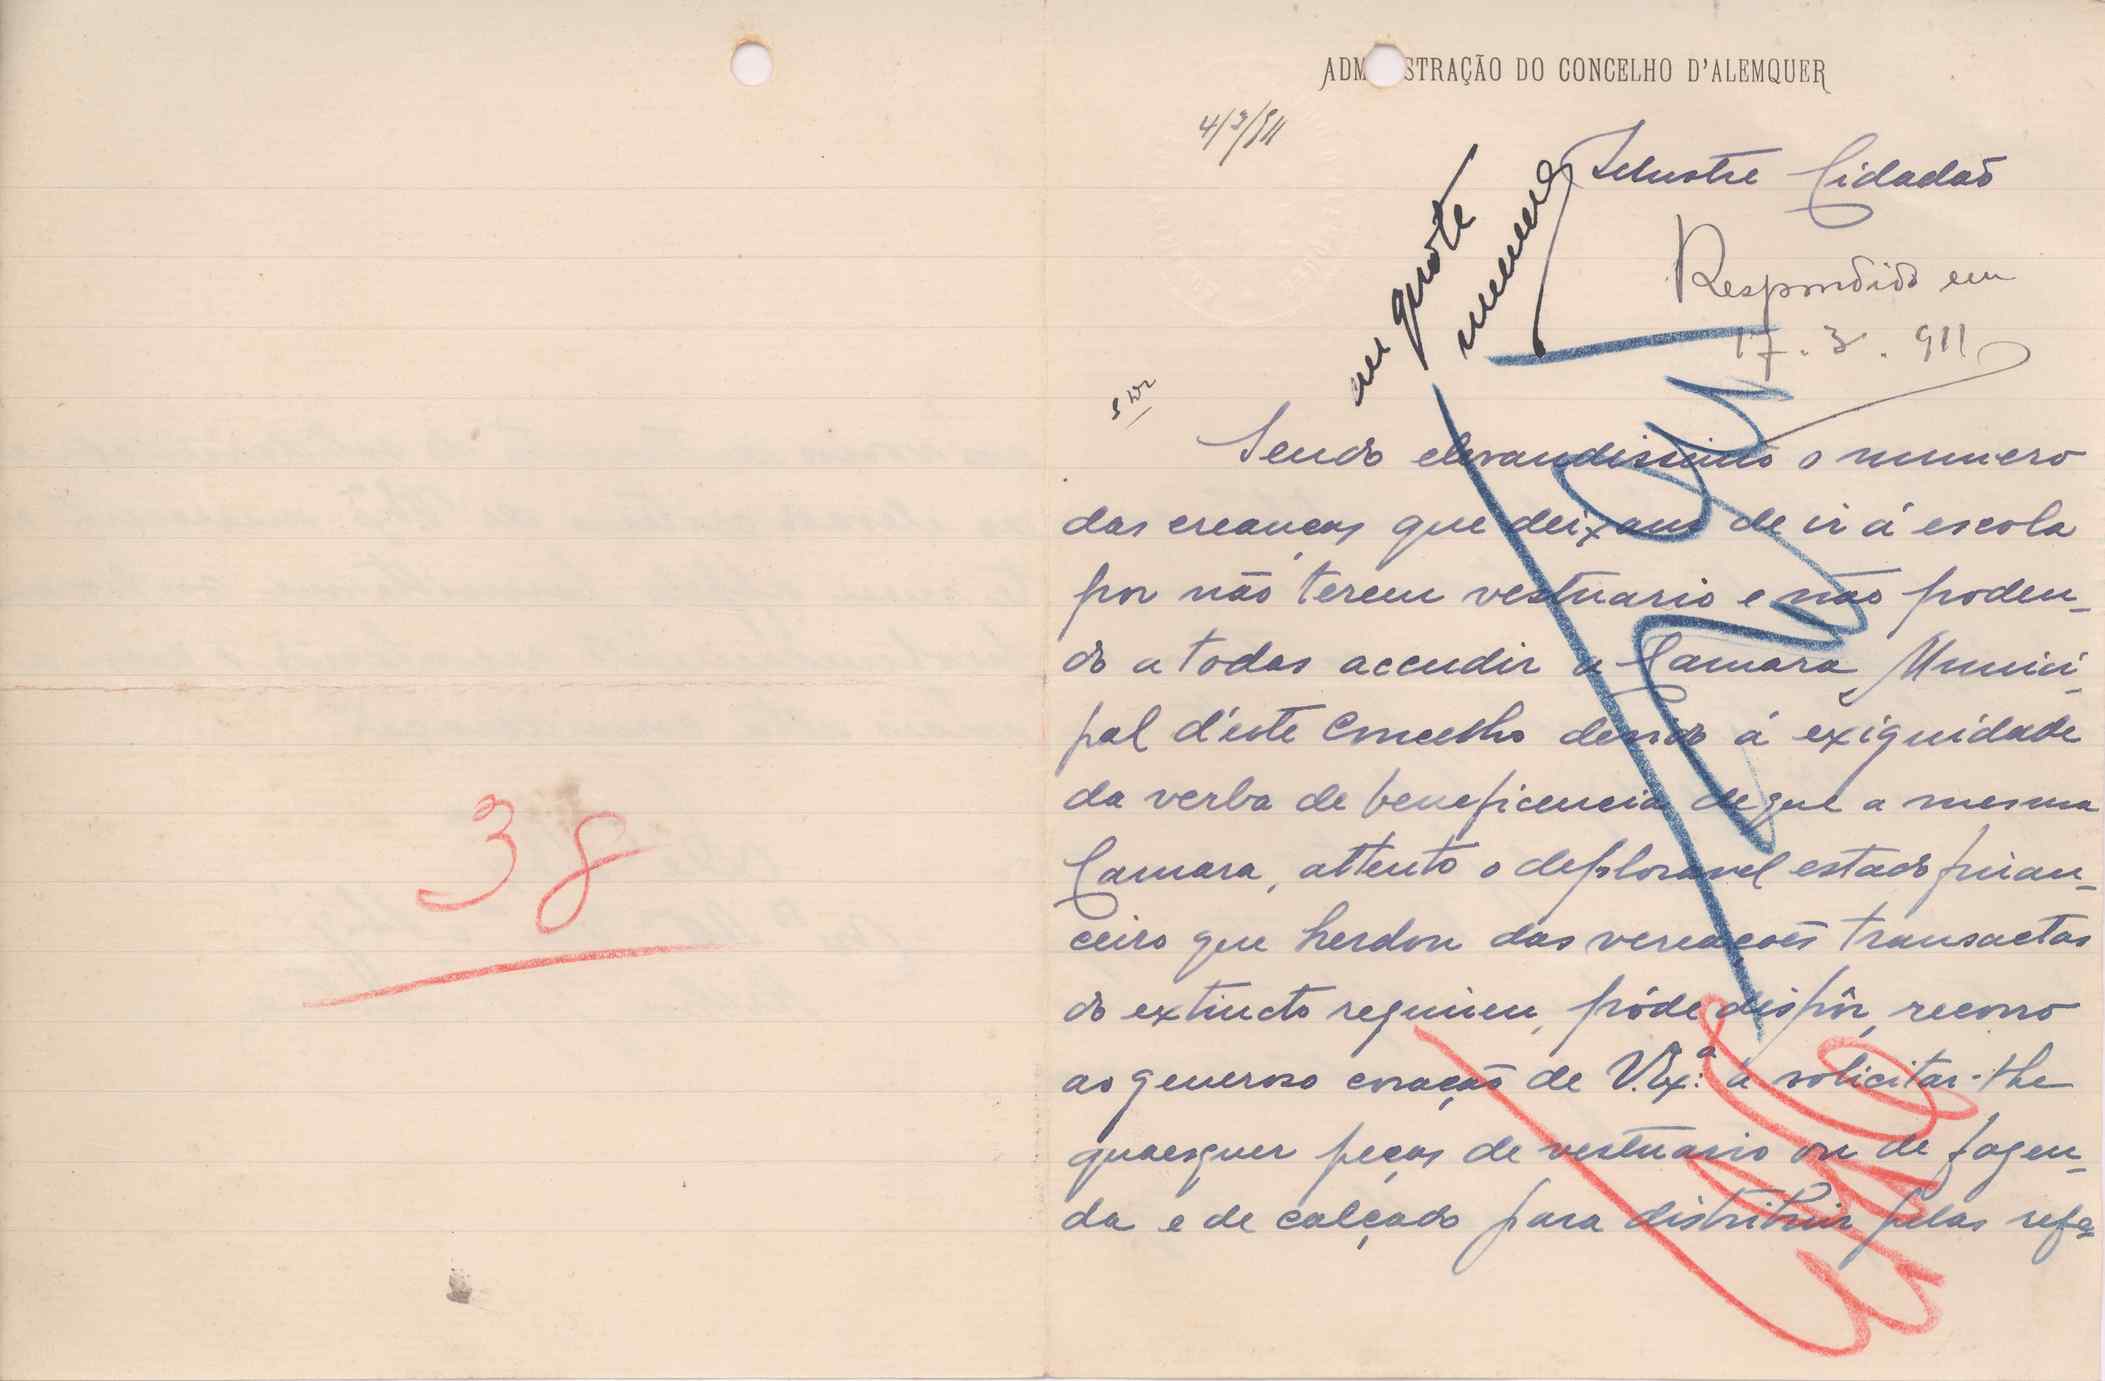 38
ADM STRAÇÃO DO CONCELHO D'ALEMQUER
4/3/911
Illustre Cidadão
Respondido em
17.3.911
Sendo elevandissimo o numero
das creanças que deixam de ir á escola
por não terem vestuario e não poden-
do a todas accudir a Camara Munici-
pal d'este Concelho devido á exiguidade
da verba de beneficencia de que a mesma
Camara, attento o deploravel estado finan-
ceiro que herdou das vereações transactas
do extincto regimen, póde dispôr, recorro
ao generoso coração de V. Ex.ª a solicitar-lhe
quaesquer peças de vestuario ou de fazen-
da e de calçado para distribuir pelas refe-